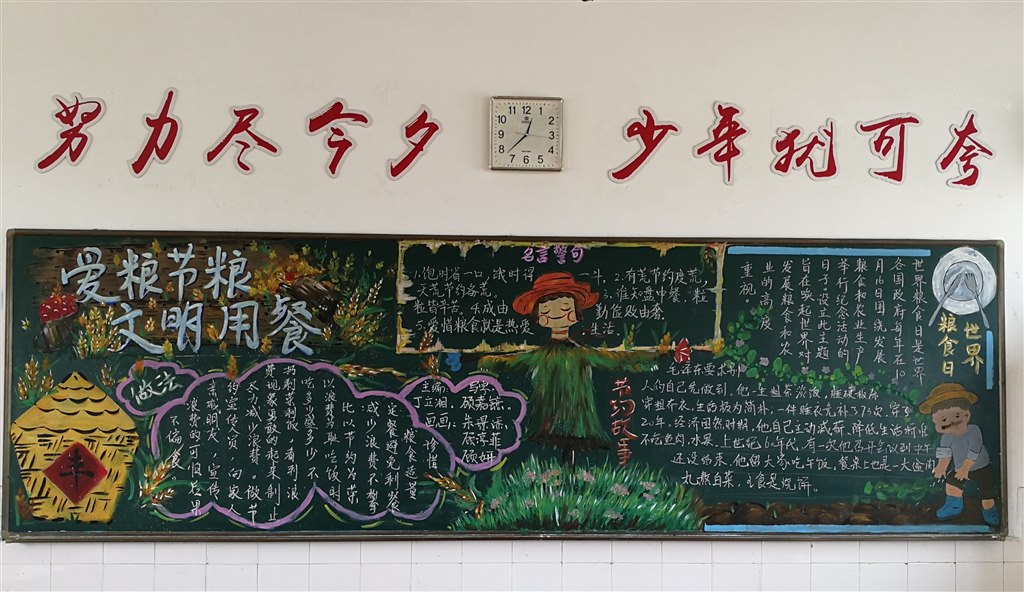 努力尽今夕 少年犹可夸
11 12 1
10 2
9 3
8 4
7 6 5
爱粮节粮
文明用餐
名言警句
1.饱时省一口,饿时得一斗。2.有荒节约度荒,
无荒节约备荒。3.谁知盘中餐,粒
粒皆辛苦。4.成由勤俭败由奢。
5.爱惜粮食就是热爱生活
世界粮食日是世界
各国政府每年在10
月16日围绕发展
粮食和农业生产
举行纪念活动的
日子设立此主题
旨在唤起世界对
发展粮食和农
业的高度
重视。
世界
粮食日
做法
粮食适量
定餐避免剩
比以节约为荣
以浪费为耻吃饭时
吃多少盛多少不
扔剩菜剩饭,看到浪
费现象勇敢的起来制止
尽力减少浪费。做节
约宣传员,向家人
亲戚朋友,宣传
浪费的可怕后果
不偏食
主编:
画:
节约故事
毛泽东要求别
人的自己先做到,他一生粗茶淡饭,睡硬板床
穿粗布衣,生活极为简朴,一件睡衣竟补了73次,穿了
20年。经济困难时期,他自己主动减薪、降低生活标准
不吃鱼肉、水果。上世纪60年代,有一次他召开会议到中午
还没结束,他留大家吃午饭,餐桌上也是一大盆肉
丸熬白菜,主食是烧饼。
丰